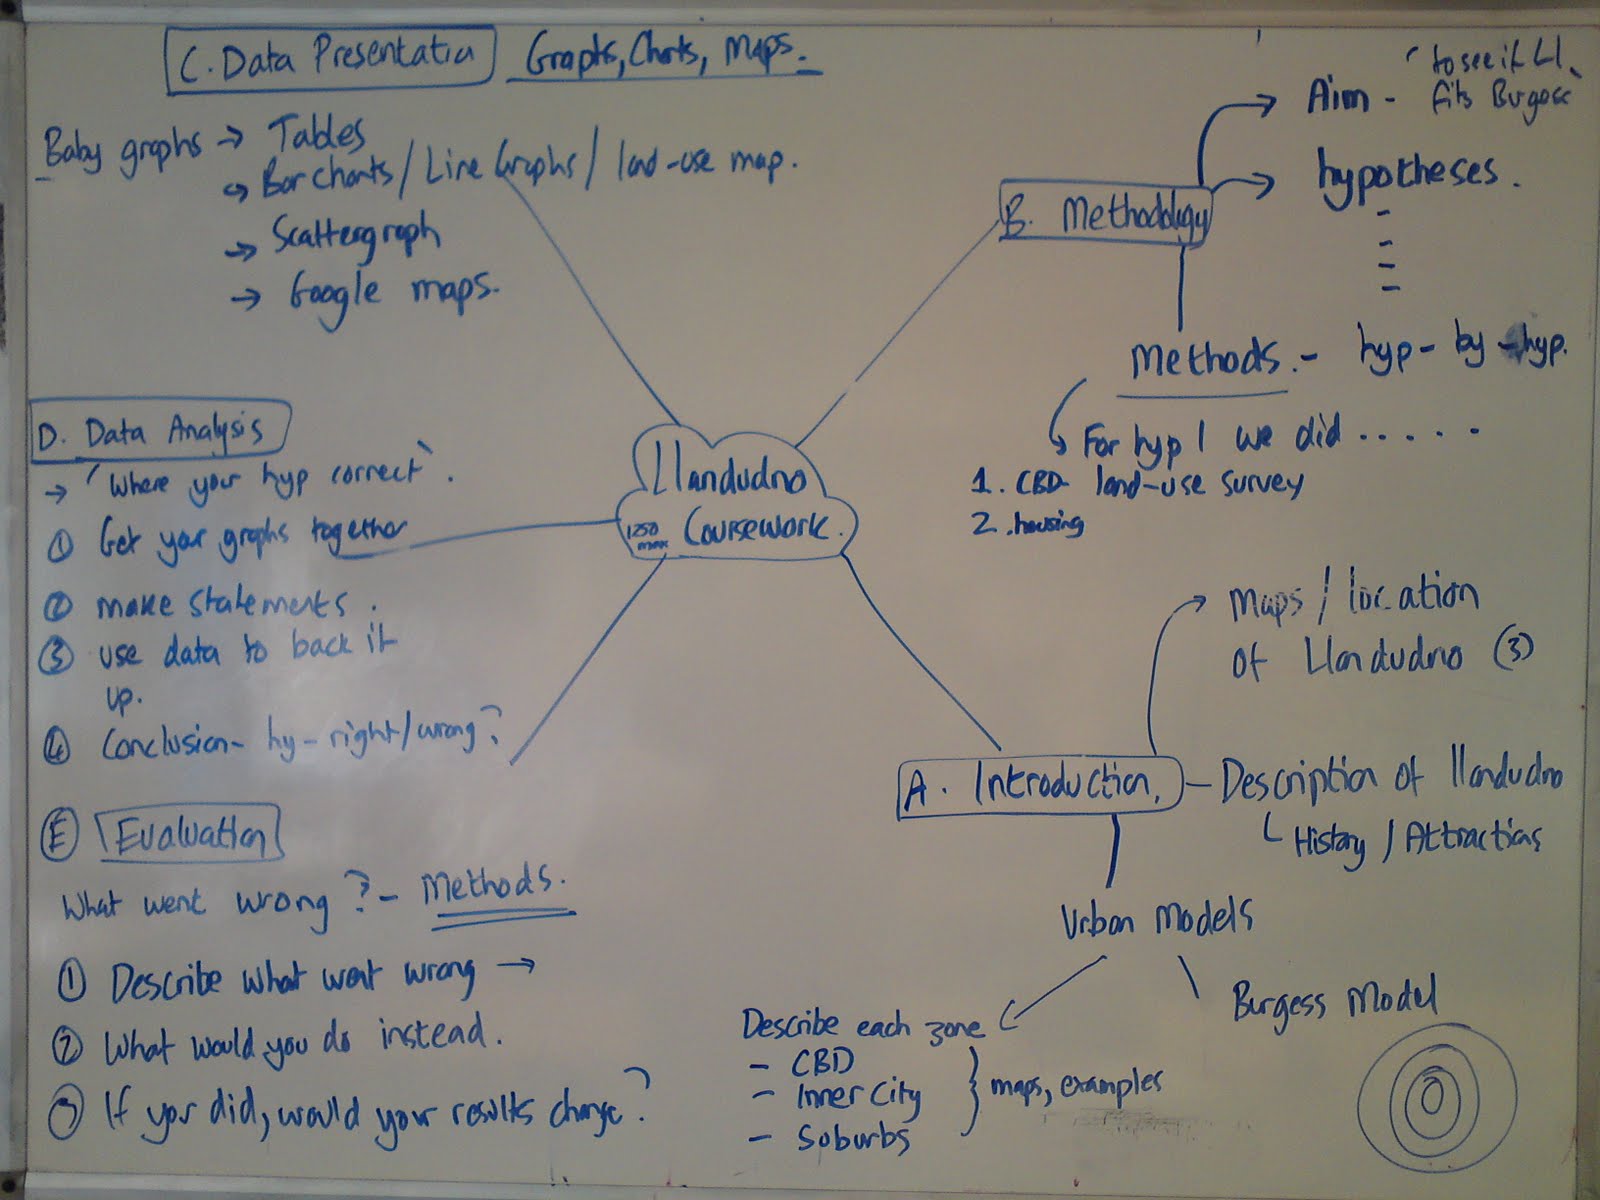 C. Data Presentatia Graphs, Charts, Maps.
Baby graphs → Tables
→ Bar charts / Line Graphs / land-use map.
→ Scattergraph
→ Google maps.
B. Methodology
Aim - 'to see if Ll.
fits Burgess'
hypotheses.
-
-
-
-
Methods. - hyp - by - hyp.
For hyp 1 we did .....
1. CBD land-use survey
2. housing
Llandudno
1250
max
Coursework.
D. Data Analysis
→ 'Where your hyp correct'.
① Get your graphs together
② make statements.
③ use data to back it
up.
④ Conclusion - hy - right/wrong?
Ⓔ Evaluation
What went wrong? - Methods.
① Describe what went wrong →
② What would you do instead.
③ If you did, would your results change?
A. Introduction.
Maps / location
of Llandudno (3)
- Description of llandudno
History / Attractions
Urban Models
Burgess Model
Describe each zone
- CBD
- Inner City
- Suburbs
maps, examples